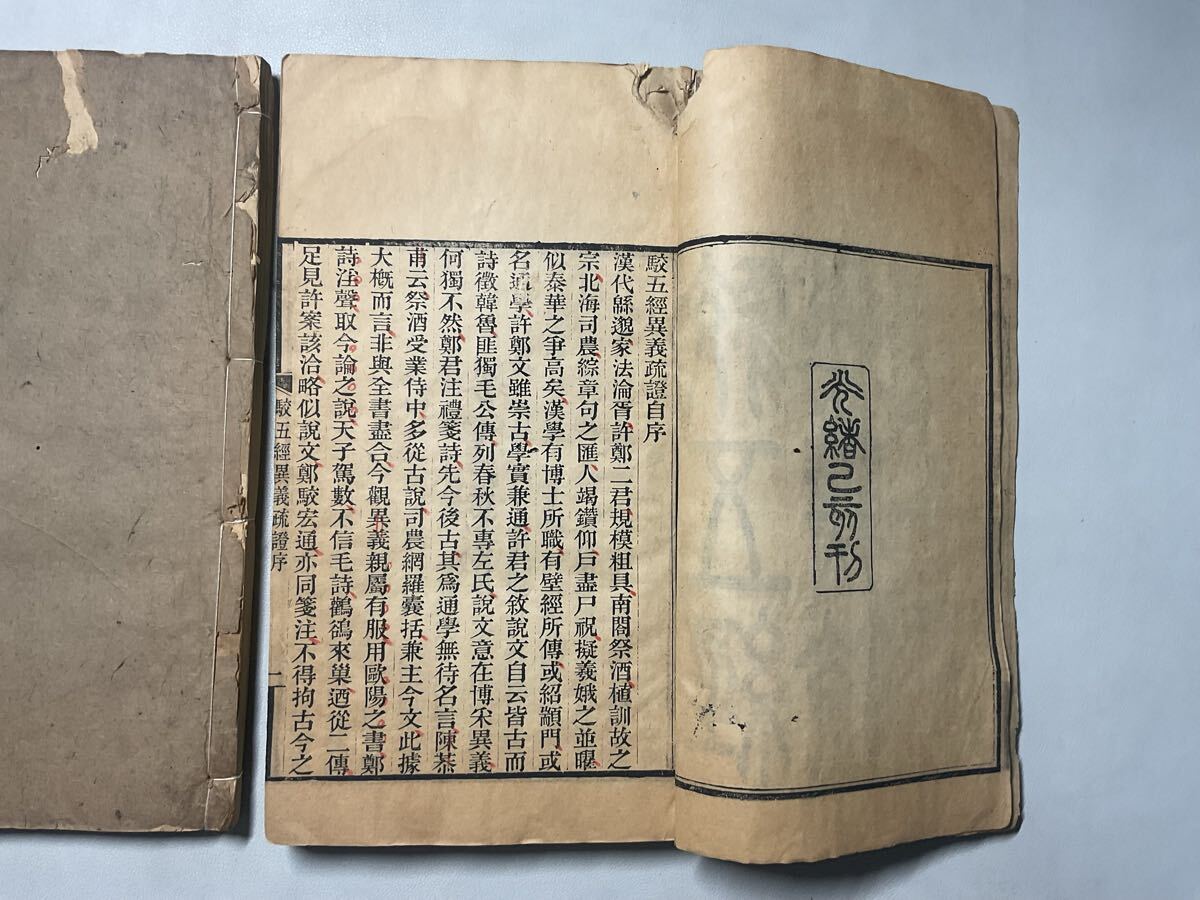 光緒己亥刊
駮五經異義疏證自序
漢代緜邈家法淪胥許鄭二君規模粗具南閣祭酒植訓故之
宗北海司農綜章句之匯人竭鑽仰戶盡尸祝擬羲娥之並曜
似泰華之爭高矣漢學有博士所職有壁經所傳或紹顓門或
名通學許鄭文雖崇古學實兼通許君之敘說文自云皆古而
詩徵韓魯匪獨毛公傳列春秋不專左氏說文意在博釆異義
何獨不然鄭君注禮箋詩先今後古其爲通學無待名言陳恭
甫云祭酒受業侍中多從古說司農網羅囊括兼主今文此據
大槪而言非與全書盡合今觀異義親屬有服用歐陽之書鄭
詩淫聲取今論之說天子駕數不信毛詩鸛鵒來巢迺從二傳
足見許案該洽略似說文鄭駮宏通亦同箋注不得拘古今之
駮五經異義疏證序
一